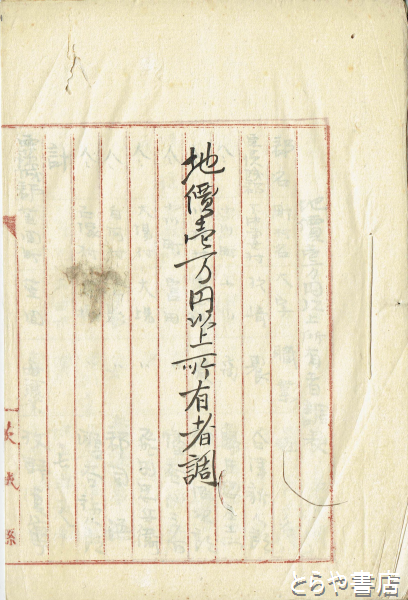 地價壱万円以上所有者調
茨城縣
とらや書店